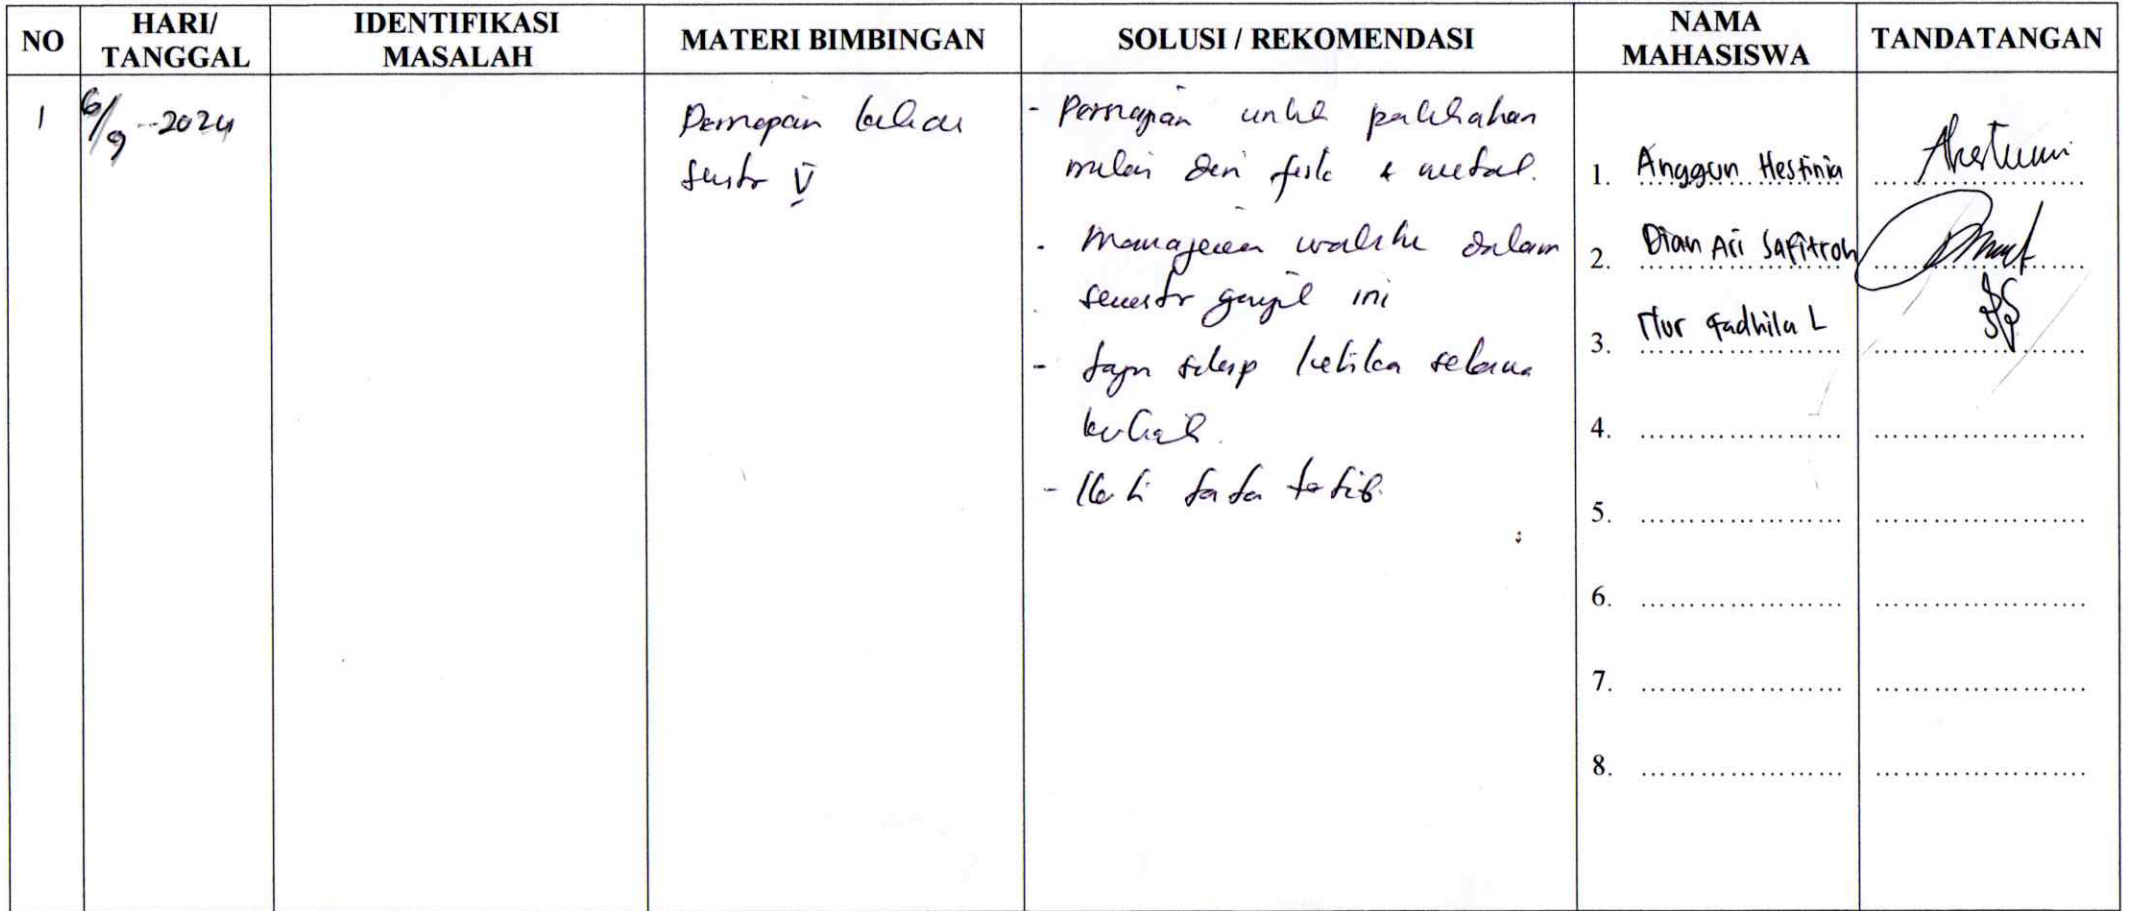 NO
HARI/
TANGGAL
IDENTIFIKASI
MASALAH
MATERI BIMBINGAN
SOLUSI / REKOMENDASI
NAMA
MAHASISWA
TANDATANGAN
1
6/9 - 2024
Persiapan kuliah
V
- Persiapan untuk perkuliahan
mulai dari fisik & mental.
- Manajemen waktu dalam
semester ganjil ini
- selama
kuliah.
- tata tertib.
1. Anggun Hestinia
2. Dian Ari Safitroh
3. Nur Fadhila L
4. ....................
5. ....................
6. ....................
7. ....................
8. ....................